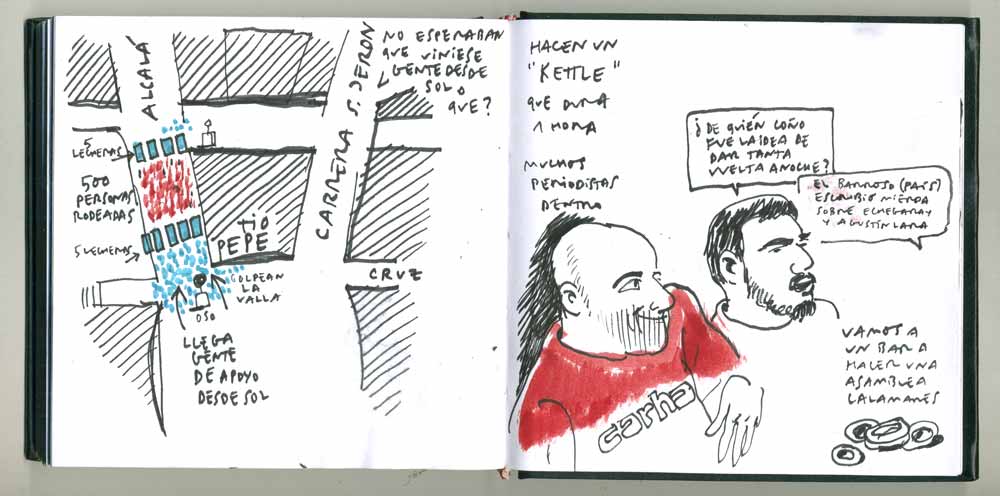 ALCALÁ
CARRERA S. JERON
NO ESPERABAN
QUE VINIESE
GENTE DESDE
SOL O
QUE?
5
LECHERAS
500
PERSONAS
RODEADAS
5 LECHERAS
TIO
PEPE
GOLPEAN
LA
VALLA
CRUZ
OSO
LLEGA
GENTE
DE APOYO
DESDE SOL
HACEN UN
"KETTLE"
QUE DURA
1 HORA
MUCHOS
PERIODISTAS
DENTRO
¿DE QUIÉN COÑO
FUE LA IDEA DE
DAR TANTA
VUELTA ANOCHE?
EL BARROSO (PAÍS)
ESCRIBIÓ MIERDA
SOBRE ECHEGARAY
Y AGUSTÍN LARA
carha
VAMOS A
UN BAR A
HACER UNA
ASAMBLEA
CALAMARES